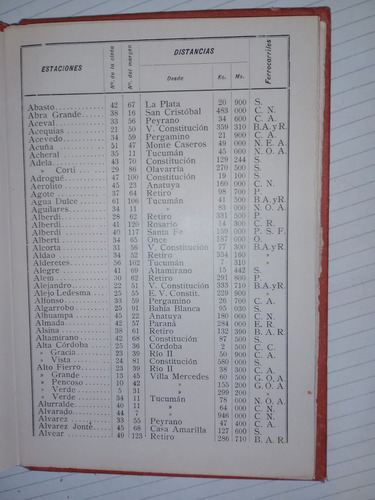 ESTACIONES Nº. de la cinta Nº. del margen DISTANCIAS Desde Ks. Ms. Ferrocarriles
Abasto 42 67 La Plata 20 900 S.
Abra Grande 38 16 San Cristóbal 483 000 C. N.
Aceval 33 56 Peyrano 34 600 C. A.
Acequias 21 50 V. Constitución 359 310 B.A.yR.
Acevedo 34 59 Pergamino 21 900 C. A.
Acuña 51 47 Monte Caseros 49 000 N. E. A.
Acheral 35 11 Tucumán 45 000 N. O. A.
Adela 43 70 Constitución 129 244 S.
» Corti 29 86 Olavarría 560 S.
Adrogué 47 100 Constitución 19 100 S.
Aerolito 45 23 Anatuya 160 000 C. N.
Agote 37 64 Retiro 98 700 P.
Agua Dulce 61 106 Tucumán 41 500 B.A.yR.
Aguilares 34 11 » 83 000 N. O. A.
Alberdi 28 62 Retiro 331 500 P.
Alberdi 41 120 Rosario 14 300 C. R.
Alberdi 40 117 Santa Fe 159 000 P. S. F.
Alberti 34 65 Once 187 000 O.
Alcorta 31 56 V. Constitución 77 300 B.A.yR.
Aldao 34 52 Retiro 354 160 »
Alderetes 56 102 Tucumán 7 310 »
Alegre 41 69 Altamirano 15 442 S.
Alem 30 62 Retiro 291 800 P.
Alejandro 22 51 V. Constitución 333 710 B.A.yR.
Alejo Ledesma 25 55 E. V. Constit. 229 900 »
Alfonso 33 59 Pergamino 26 700 C. A.
Algarrobo 25 91 Bahía Blanca 95 030 S.
Alhuampa 45 22 Anatuya 180 000 C. N.
Almada 42 57 Paraná 284 000 E. R.
Alsina 38 61 Retiro 132 390 B. A. R.
Altamirano 42 68 Constitución 87 500 S.
Alta Córdoba 25 36 Córdoba 2 500 C. C.
» Gracia 23 39 Río II 50 900 C. A.
» Vista 24 81 Constitución 580 000 S.
Alto Fierro 23 39 Río II 38 300 C. A.
» Grande 13 45 Villa Mercedes 60 500 G. O. A.
» Pencoso 10 42 » 155 200 G. O. A.
» Verde 5 31 » 299 200 »
» Verde 34 11 Tucumán 78 000 N. O. A.
Alurralde 40 11 » 64 000 C. N.
Alvarado 44 7 » 946 000 C. N.
Alvarez 33 55 Peyrano 47 400 C. A.
Alvarez Jonte 45 68 Casa Amarilla 127 600 S.
Alvear 49 123 Retiro 286 710 B. A. R.